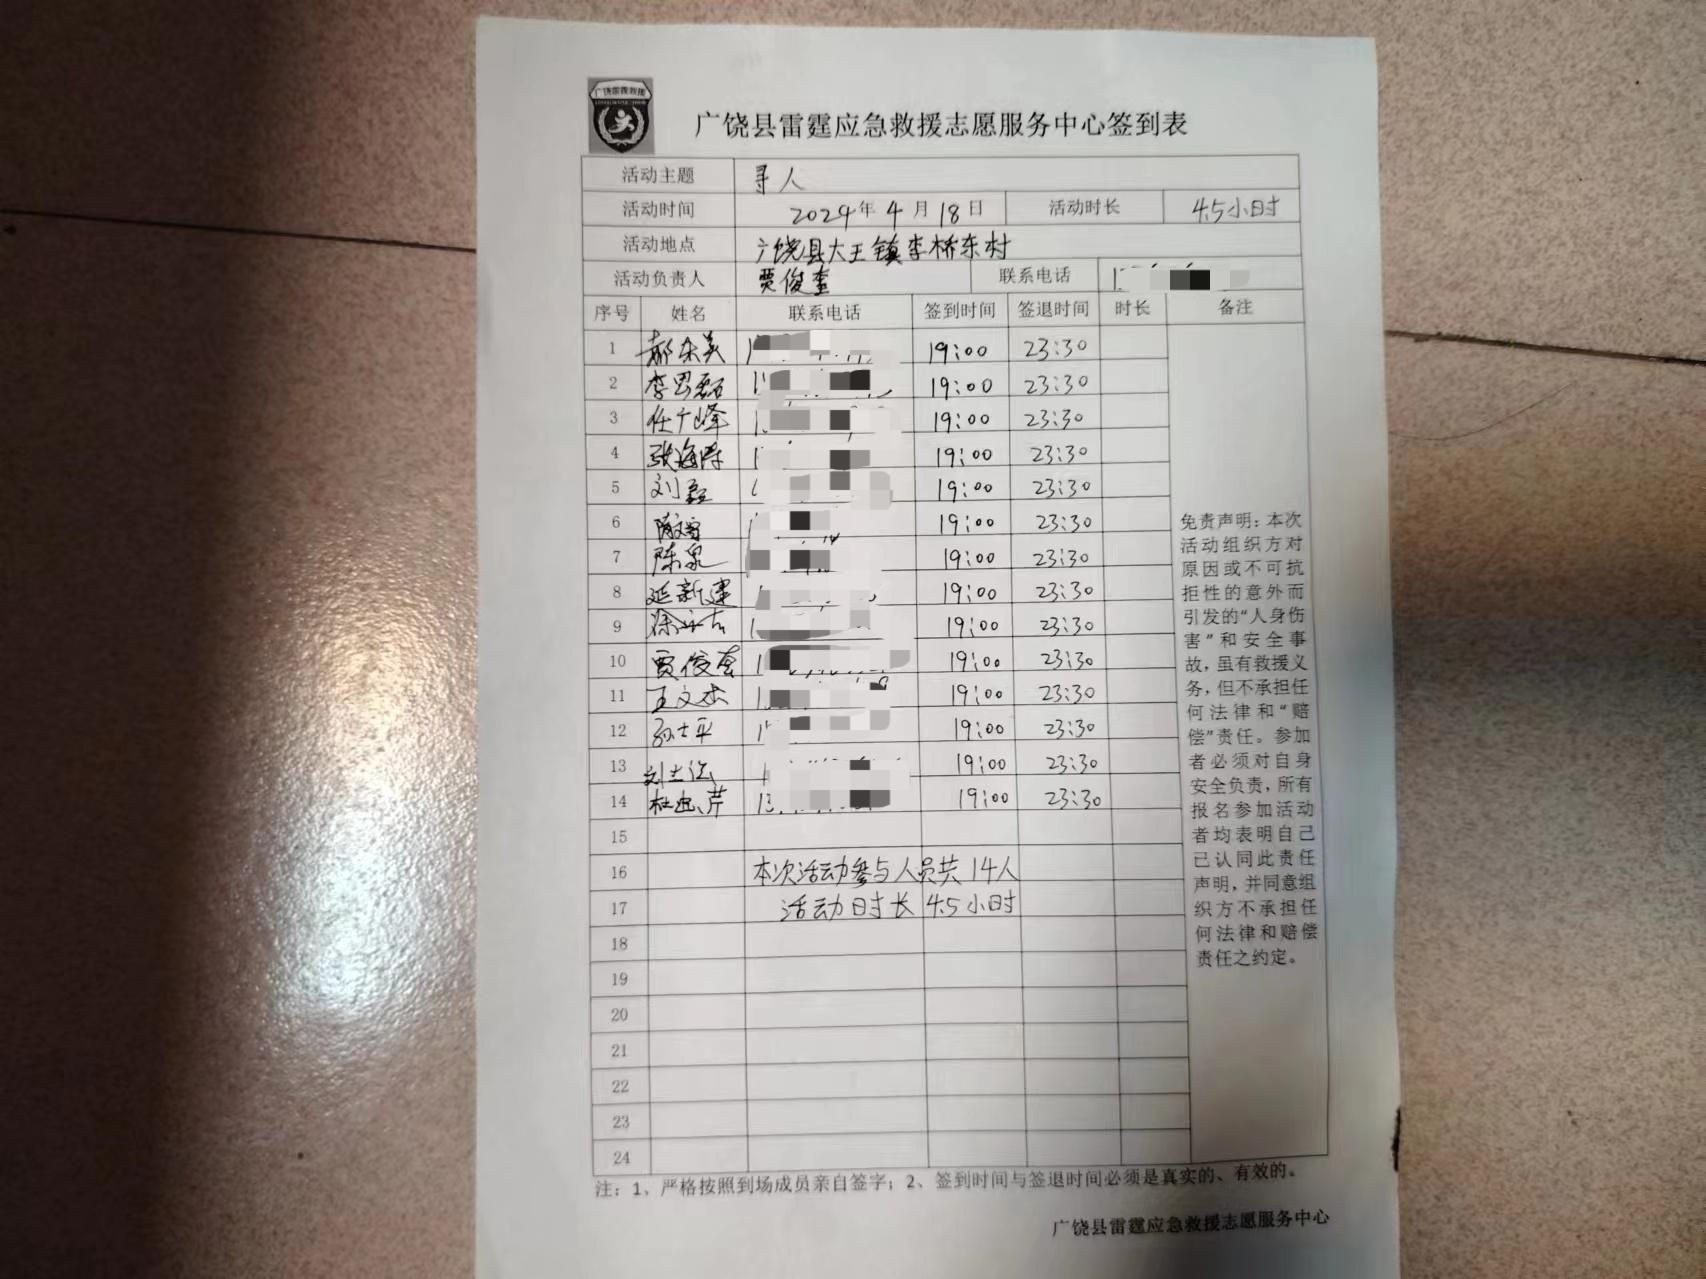 广饶雷霆救援
广饶县雷霆应急救援志愿服务中心签到表
活动主题 寻人
活动时间 2024年4月18日 活动时长 4.5小时
活动地点 广饶县大王镇李桥东村
活动负责人 贾俊奎 联系电话 1
序号 姓名 联系电话 签到时间 签退时间 时长 备注
1 郝东美 1 19:00 23:30
2 李思磊 1 19:00 23:30
3 任广峰 1 19:00 23:30
4 张海涛 1 19:00 23:30
5 刘磊 19:00 23:30
6 19:00 23:30
7 陈泉 19:00 23:30
8 延新建 1 19:00 23:30
9 1 19:00 23:30
10 贾俊奎 1 19:00 23:30
11 王文杰 1 19:00 23:30
12 孙士平 1 19:00 23:30
13 19:00 23:30
14 13 19:00 23:30
15
16 本次活动参与人员共14人
17 活动时长4.5小时
18
19
20
21
22
23
24
免责声明：本次
活动组织方对
原因或不可抗
拒性的意外而
引发的“人身伤
害”和安全事
故，虽有救援义
务，但不承担任
何法律和“赔
偿”责任。参加
者必须对自身
安全负责，所有
报名参加活动
者均表明自己
已认同此责任
声明，并同意组
织方不承担任
何法律和赔偿
责任之约定。
注：1、严格按照到场成员亲自签字；2、签到时间与签退时间必须是真实的、有效的。
广饶县雷霆应急救援志愿服务中心